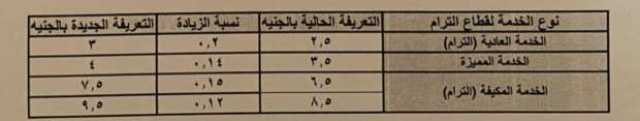 نوع الخدمة لقطاع الترام التعريفة الحالية بالجنيه نسبة الزيادة التعريفة الجديدة بالجنيه
الخدمة العادية (الترام) ٢,٥ ٠,٢ ٣
الخدمة المميزة ٣,٥ ٠,١٤ ٤
الخدمة المكيفة (الترام) ٦,٥ ٠,١٥ ٧,٥
٨,٥ ٠,١٢ ٩,٥